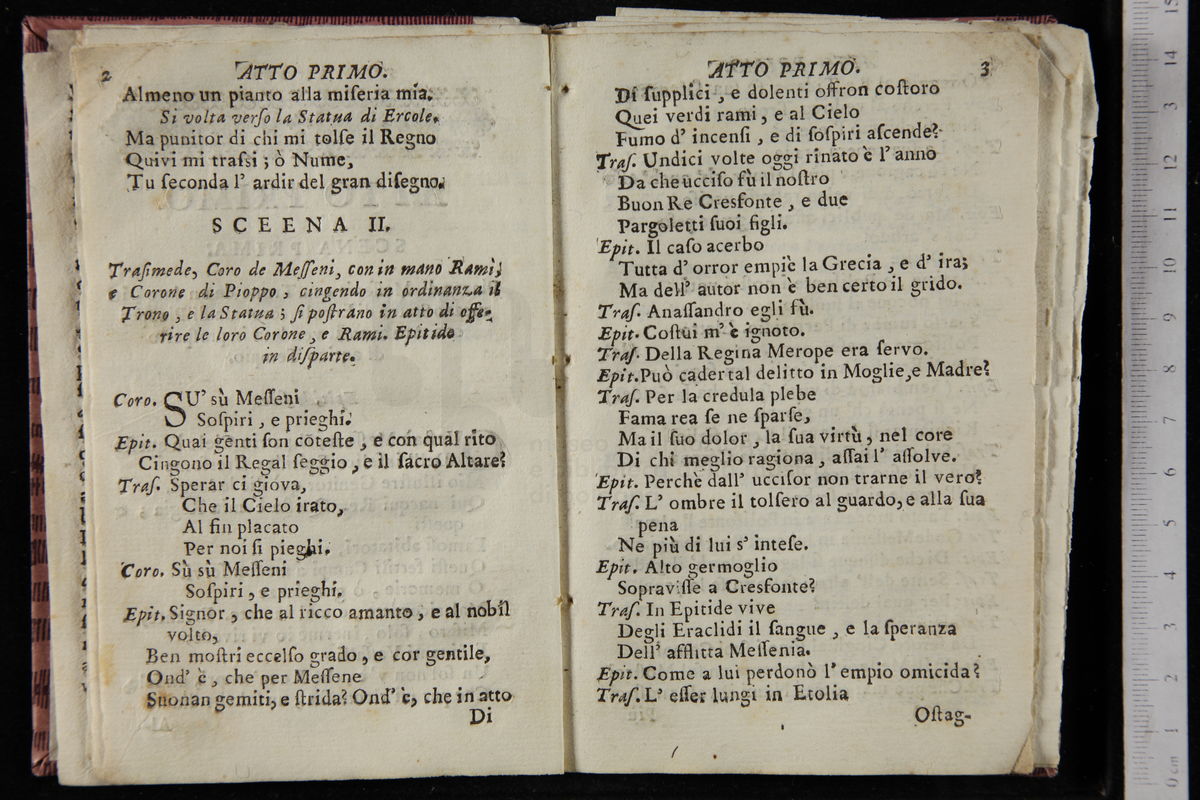 2 ATTO PRIMO.
Almeno un pianto alla miſeria mia.
Si volta verſo la Statua di Ercole.
Ma punitor di chi mi tolſe il Regno
Quivi mi traſsi; ò Nume,
Tu ſeconda l' ardir del gran diſegno.
SCEENA II.
Traſimede, Coro de Meſſeni, con in mano Rami,
e Corone di Pioppo, cingendo in ordinanza il
Trono, e la Statua; ſi poſtrano in atto di offe-
rire le loro Corone, e Rami. Epitide
in diſparte.
Coro. SU' sù Meſſeni
Soſpiri, e prieghi.
Epit. Quai genti ſon coteſte, e con qual rito
Cingono il Regal ſeggio, e il ſacro Altare?
Traſ. Sperar ci giova,
Che il Cielo irato,
Al fin placato
Per noi ſi pieghi.
Coro. Sù sù Meſſeni
Soſpiri, e prieghi.
Epit. Signor, che al ricco amanto, e al nobil
volto,
Ben moſtri eccelſo grado, e cor gentile,
Ond' è, che per Meſſene
Suonan gemiti, e ſtrida? Ond' è, che in atto
Di
ATTO PRIMO. 3
Di ſupplici, e dolenti offron coſtoro
Quei verdi rami, e al Cielo
Fumo d' incenſi, e di ſoſpiri aſcende?
Traſ. Undici volte oggi rinato è l' anno
Da che ucciſo fù il noſtro
Buon Re Cresfonte, e due
Pargoletti ſuoi figli.
Epit. Il caſo acerbo
Tutta d' orror empiè la Grecia, e d' ira;
Ma dell' autor non è ben certo il grido.
Traſ. Anaſſandro egli fù.
Epit. Coſtui m' è ignoto.
Traſ. Della Regina Merope era ſervo.
Epit. Può cader tal delitto in Moglie, e Madre?
Traſ. Per la credula plebe
Fama rea ſe ne ſparſe,
Ma il ſuo dolor, la ſua virtù, nel core
Di chi meglio ragiona, aſſai l' aſſolve.
Epit. Perchè dall' ucciſor non trarne il vero?
Traſ. L' ombre il tolſero al guardo, e alla ſua
pena
Ne più di lui s' inteſe.
Epit. Alto germoglio
Sopraviſſe a Cresfonte?
Traſ. In Epitide vive
Degli Eraclidi il ſangue, e la ſperanza
Dell' afflitta Meſſenia.
Epit. Come a lui perdonò l' empio omicida?
Traſ. L' eſſer lungi in Etolia
Oſtag-